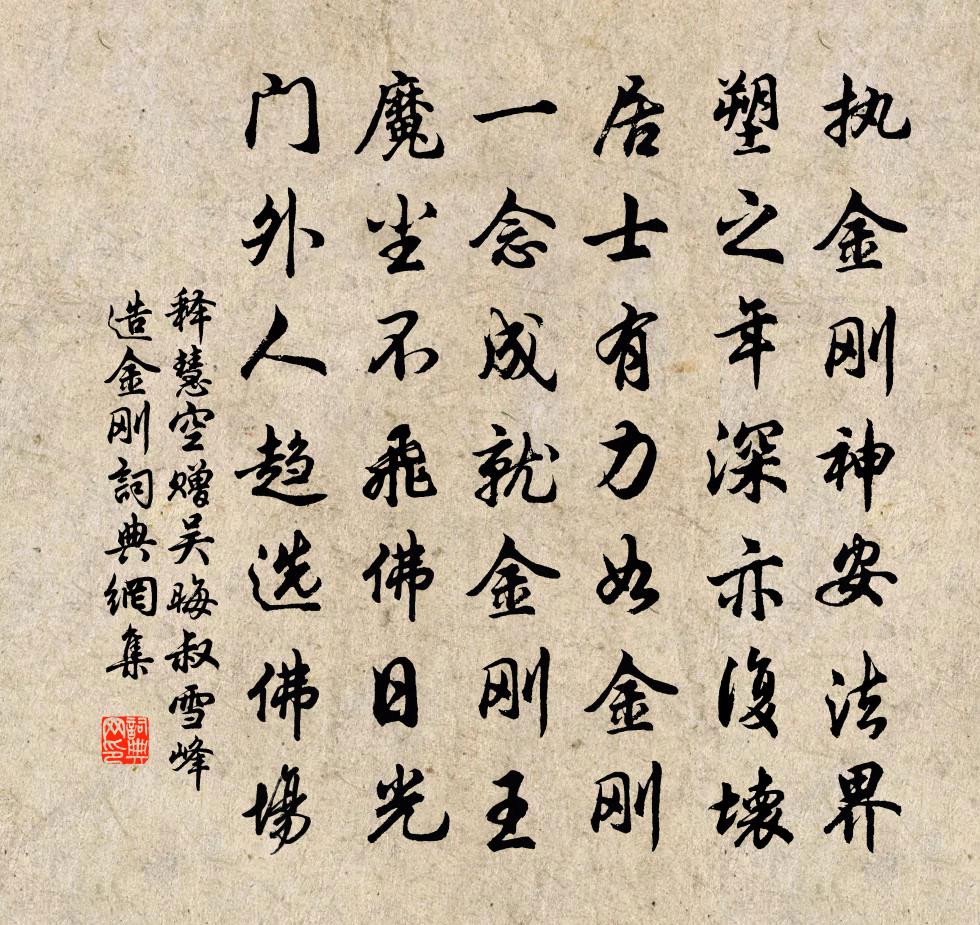 执金刚神安法界
塑之年深亦復壊
居士有力如金刚
一念成就金刚王
魔尘不飛佛日光
门外人趋选佛場
释慧空赠吴晦叔雪峰
造金刚詞典網集
詞典网印